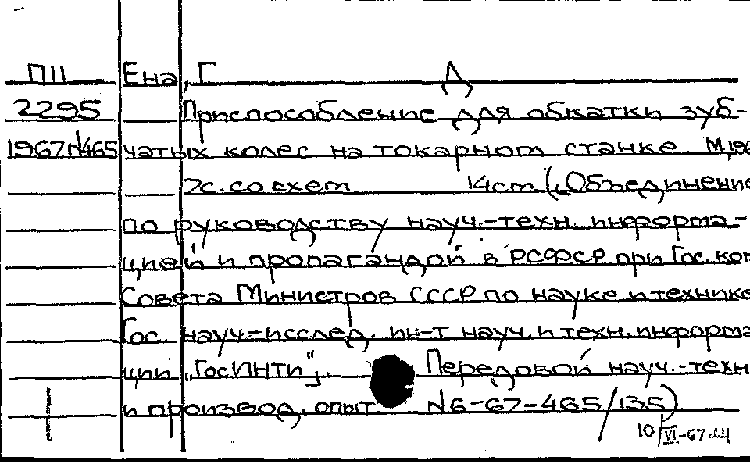 ПII Ена, Г Д
2295 Приспособление для обкатки зуб-
1967г№465 чатых колес на токарном станке М,196
2с. со схем 14см („Объединение
по руководству науч.-техн. информа-
цией и пропагандой в РСФСР при Гос. ком
Совета Министров СССР по науке и технике
Гос. науч-исслед. ин-т науч. и техн. информа
ции „ГосИНТИ“). Передовой науч.-техн
и производ. опыт N6-67-465/135)
10/VI-67